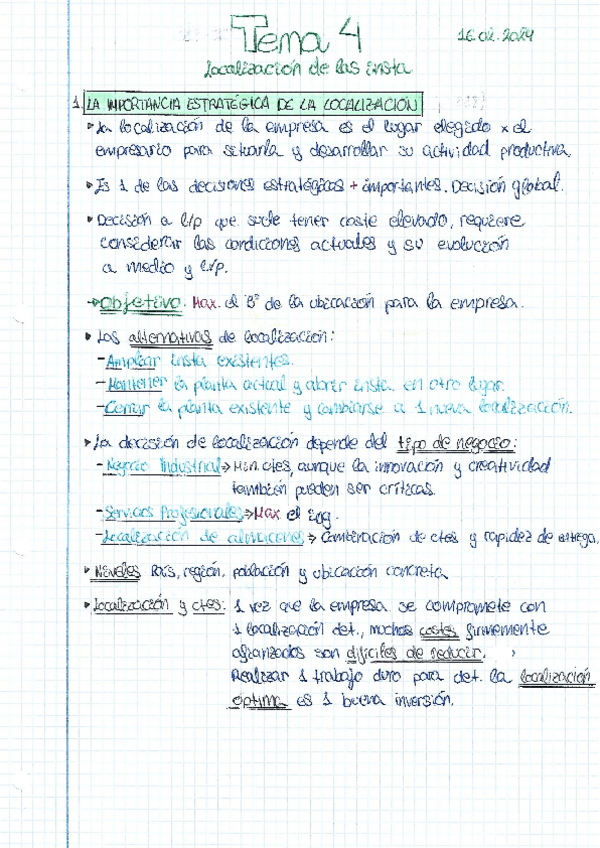 Tema 4
16.02.2024
Localización de las insta
1. LA IMPORTANCIA ESTRATÉGICA DE LA LOCALIZACIÓN
• La localización de la empresa es el lugar elegido x el
empresario para situarla y desarrollar su actividad productiva.
• Es 1 de las decisiones estratégicas + importantes. Decisión global.
• Decisión a l/p que suele tener coste elevado, requiere
considerar las condiciones actuales y su evolución
a medio y l/p.
→ Objetivo. Max. el Bº de la ubicación para la empresa.
• Las alternativas de localización:
- Ampliar insta existentes.
- Mantener la planta actual y abrir insta en otro lugar.
- Cerrar la planta existente y cambiarse a 1 nueva localización.
• La decisión de localización depende del tipo de negocio:
- Negocio Industrial → Min ctes, aunque la innovación y creatividad
también pueden ser críticas.
- Servicios Profesionales → Max el ing.
- Localización de almacenes → Combinación de ctes y rapidez de entrega.
• Niveles País, región, población y ubicación concreta
• Localización y ctes: 1 vez que la empresa se compromete con
1 localización det., muchos costes firmemente
afianzados son difíciles de reducir.
Realizar 1 trabajo duro para det. la localización
óptima es 1 buena inversión.